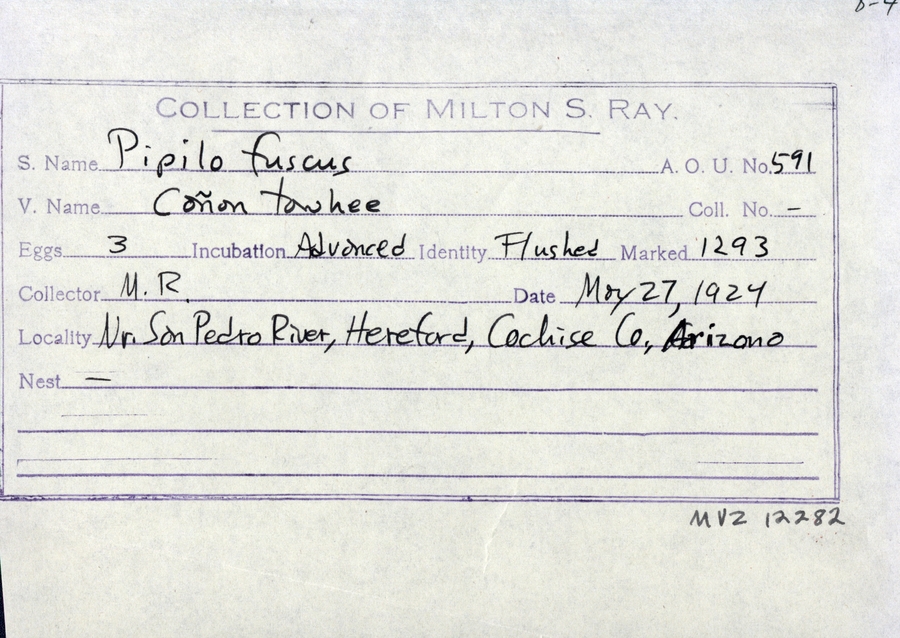 COLLECTION OF MILTON S. RAY.
S. Name Pipilo fuscus A. O. U. No. 591
V. Name Cañon towhee Coll. No. –
Eggs 3 Incubation Advanced Identity Flushed Marked 1293
Collector M. R. Date May 27, 1924
Locality Nr. San Pedro River, Hereford, Cochise Co., Arizona
Nest —
MVZ 12282